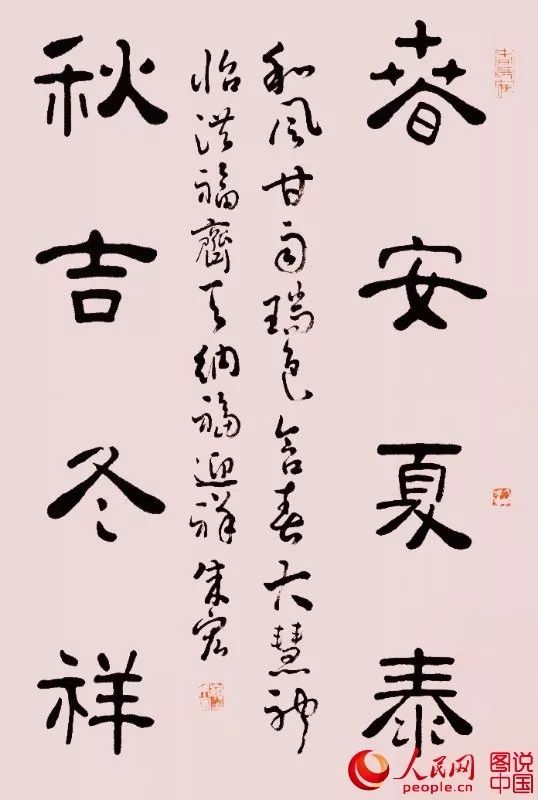 春安夏泰
秋吉冬祥
和风甘雨瑞色含春大慧神
怡洪福齊天纳福迎祥朱宏
人民网
people.cn
图说
中国